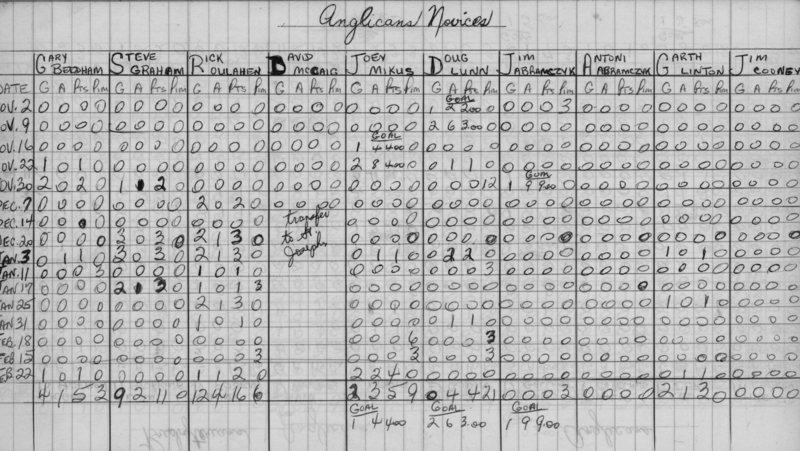 Anglicans Novices
GARY BEEDHAM STEVE GRAHAM RICK OULAHEN DAVID MCCAIG JOEY MIKUS DOUG LUNN JIM ABRAMCZYK ANTONI ABRAMCZYK GARTH LINTON JIM COONEY
DATE G A Pts Pim G A Pts Pim G A Pts Pim G A Pts Pim G A Pts Pim G A Pts Pim G A Pts Pim G A Pts Pim G A Pts Pim G A Pts Pim
GOAL
NOV. 2 0000 0000 0000 0000 0000 1 2 200 0003 0000 0000 0000
NOV. 9 0000 0000 0000 0000 0000 2 6 3.00 0000 0000 0000 0000
GOAL
NOV. 16 0000 0000 0000 0000 1 4 4.00 0000 0000 0000 0000 0000
NOV. 22 1010 0000 0000 0000 2 8 4.00 0110 0000 0000 0000
GOAL
NOV. 30 2020 1 1 2 0 0000 0000 0000 00012 1 9 9.00 0000 0000 0000
DEC. 7 0000 0000 2020 0000 0000 0000 0000 0000 0000 0000
DEC. 14 0000 0000 0000 transfer 0000 0000 0000 0000 0000 0000
DEC. 20 0000 3030 2130 to St. 0000 0000 0000 0000 0000 0000
JAN. 3 0110 2030 2130 Joseph 0110 0220 0000 0000 1010 0000
JAN. 11 0003 0000 1010 0000 0003 0000 0000 0000 0000
JAN 17 0000 2130 1013 0000 0000 0000 0000 0000 0000
JAN 25 0000 0000 2130 0000 0000 1010 0000
JAN 31 0000 0000 1010 0000 0110 0000 0000 0000 0000
FEB. 18 0000 0000 0000 0006 0003 0000 0000 0000 0000
FEB 15 0000 0000 0003 0003 0003 0000 0000 0000 0000
FEB. 22 1010 0000 1120 2240 0000 0000 0000 0110 0000
4 1 5 3 9 2 11 0 12 4 16 6 2 3 5 9 0 4 4 21 0003 0000 2130 0000
GOAL GOAL GOAL
1 4 4.00 2 6 3.00 1 9 9.00